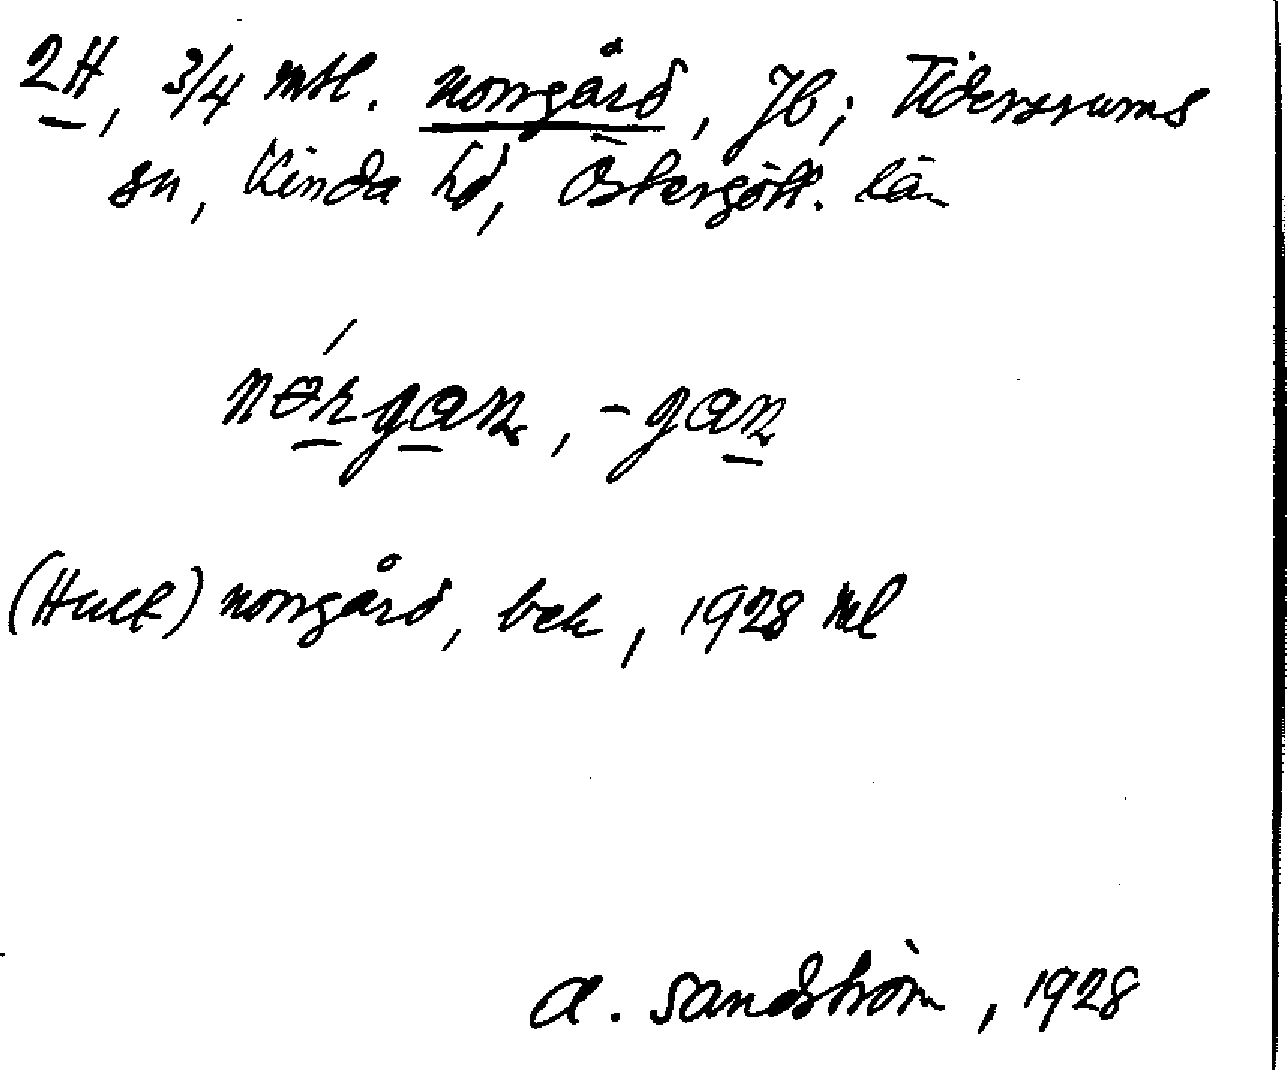 2H, 3/4 mtl. Norrgård, Jb; Tidersrums
sn, Kinda hd, Östergötl. län
nǿrgan, -gan
(Hult) Norrgård, bek, 1928 Ml
A. Sandström, 1928